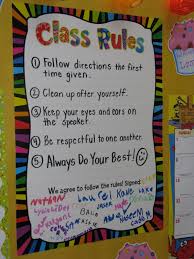 Class Rules
① Follow directions the first
time given.
② Clean up after yourself.
③ Keep your eyes and ears on
the speaker.
④ Be respectful to one another.
⑤ Always Do Your Best!
We agree to follow the rules! Signed,
NATHAN Laurel Kate Jake